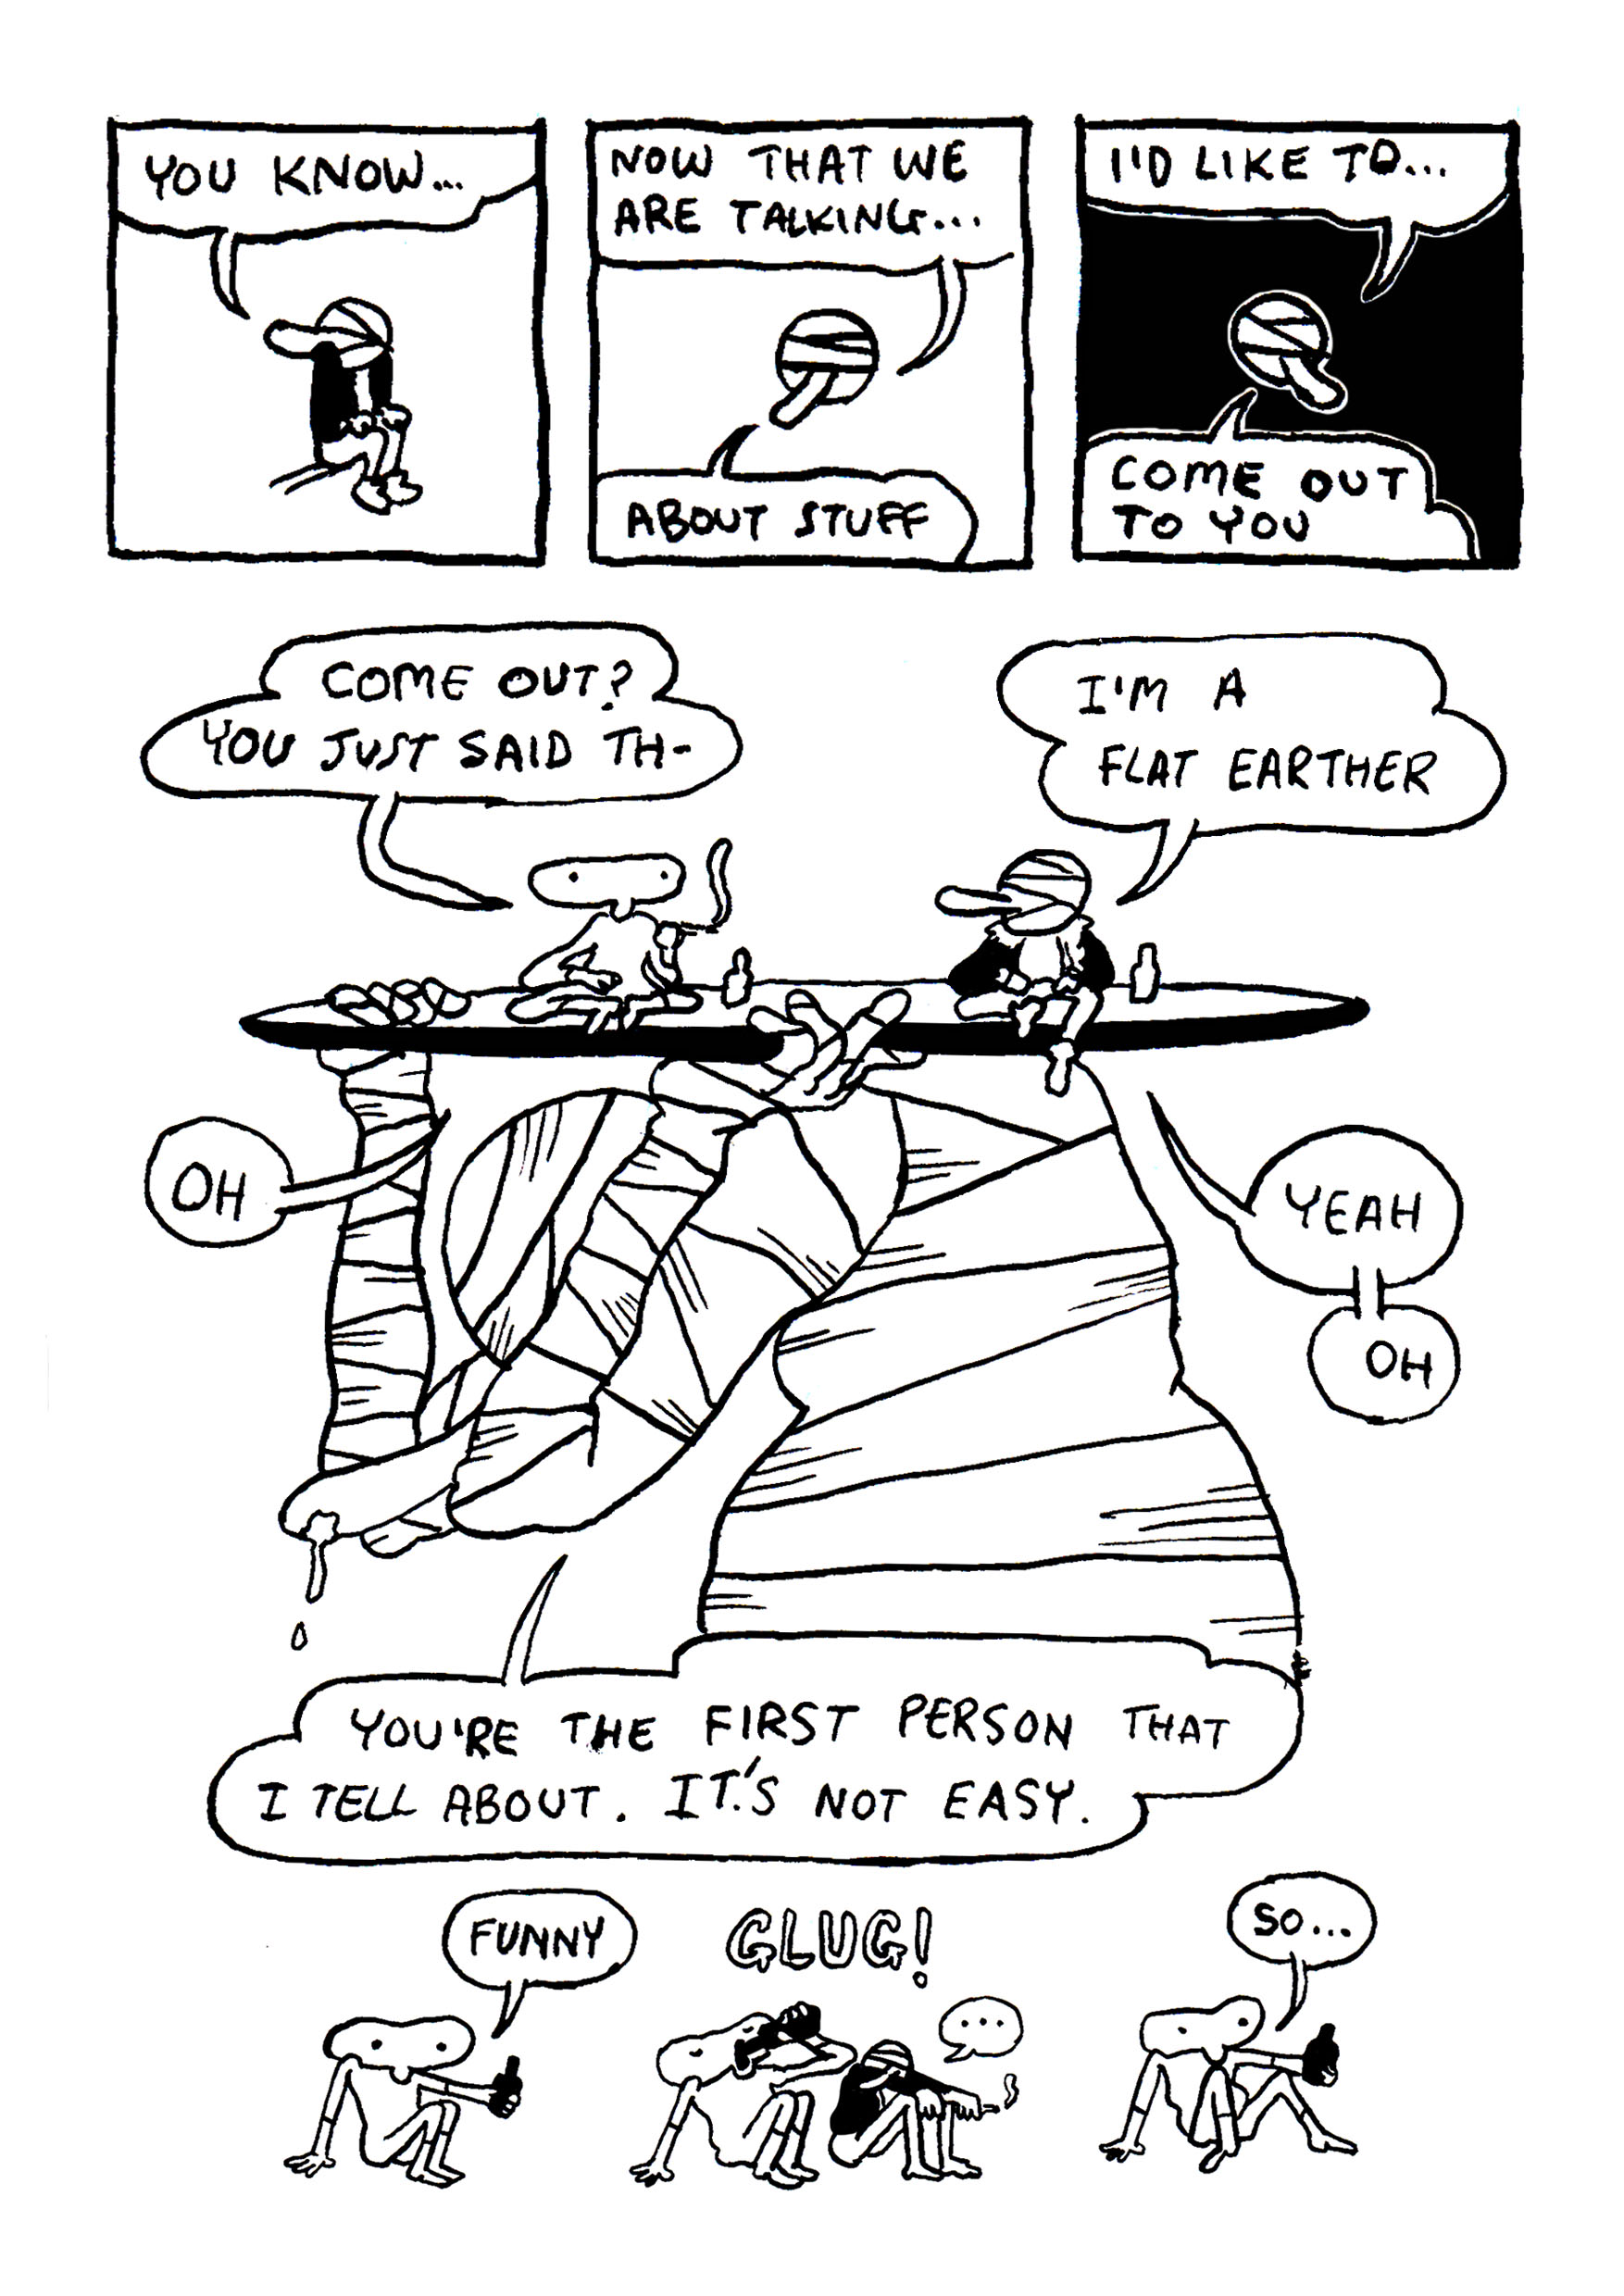 YOU KNOW...
NOW THAT WE
ARE TALKING...
ABOUT STUFF
I'D LIKE TO...
COME OUT
TO YOU
COME OUT?
YOU JUST SAID TH-
I'M A
FLAT EARTHER
OH
YEAH
OH
YOU'RE THE FIRST PERSON THAT
I TELL ABOUT. IT.'S NOT EASY.
FUNNY
GLUG!
...
SO...